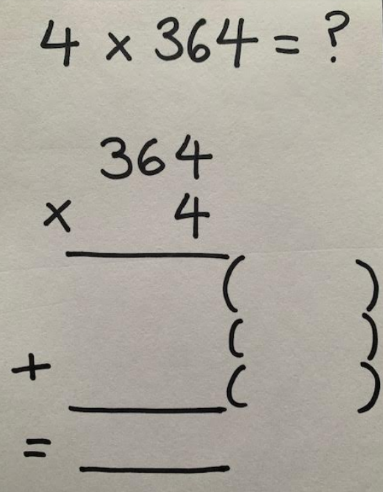 4 × 364 = ?
364
× 4
( )
( )
+ ( )
=